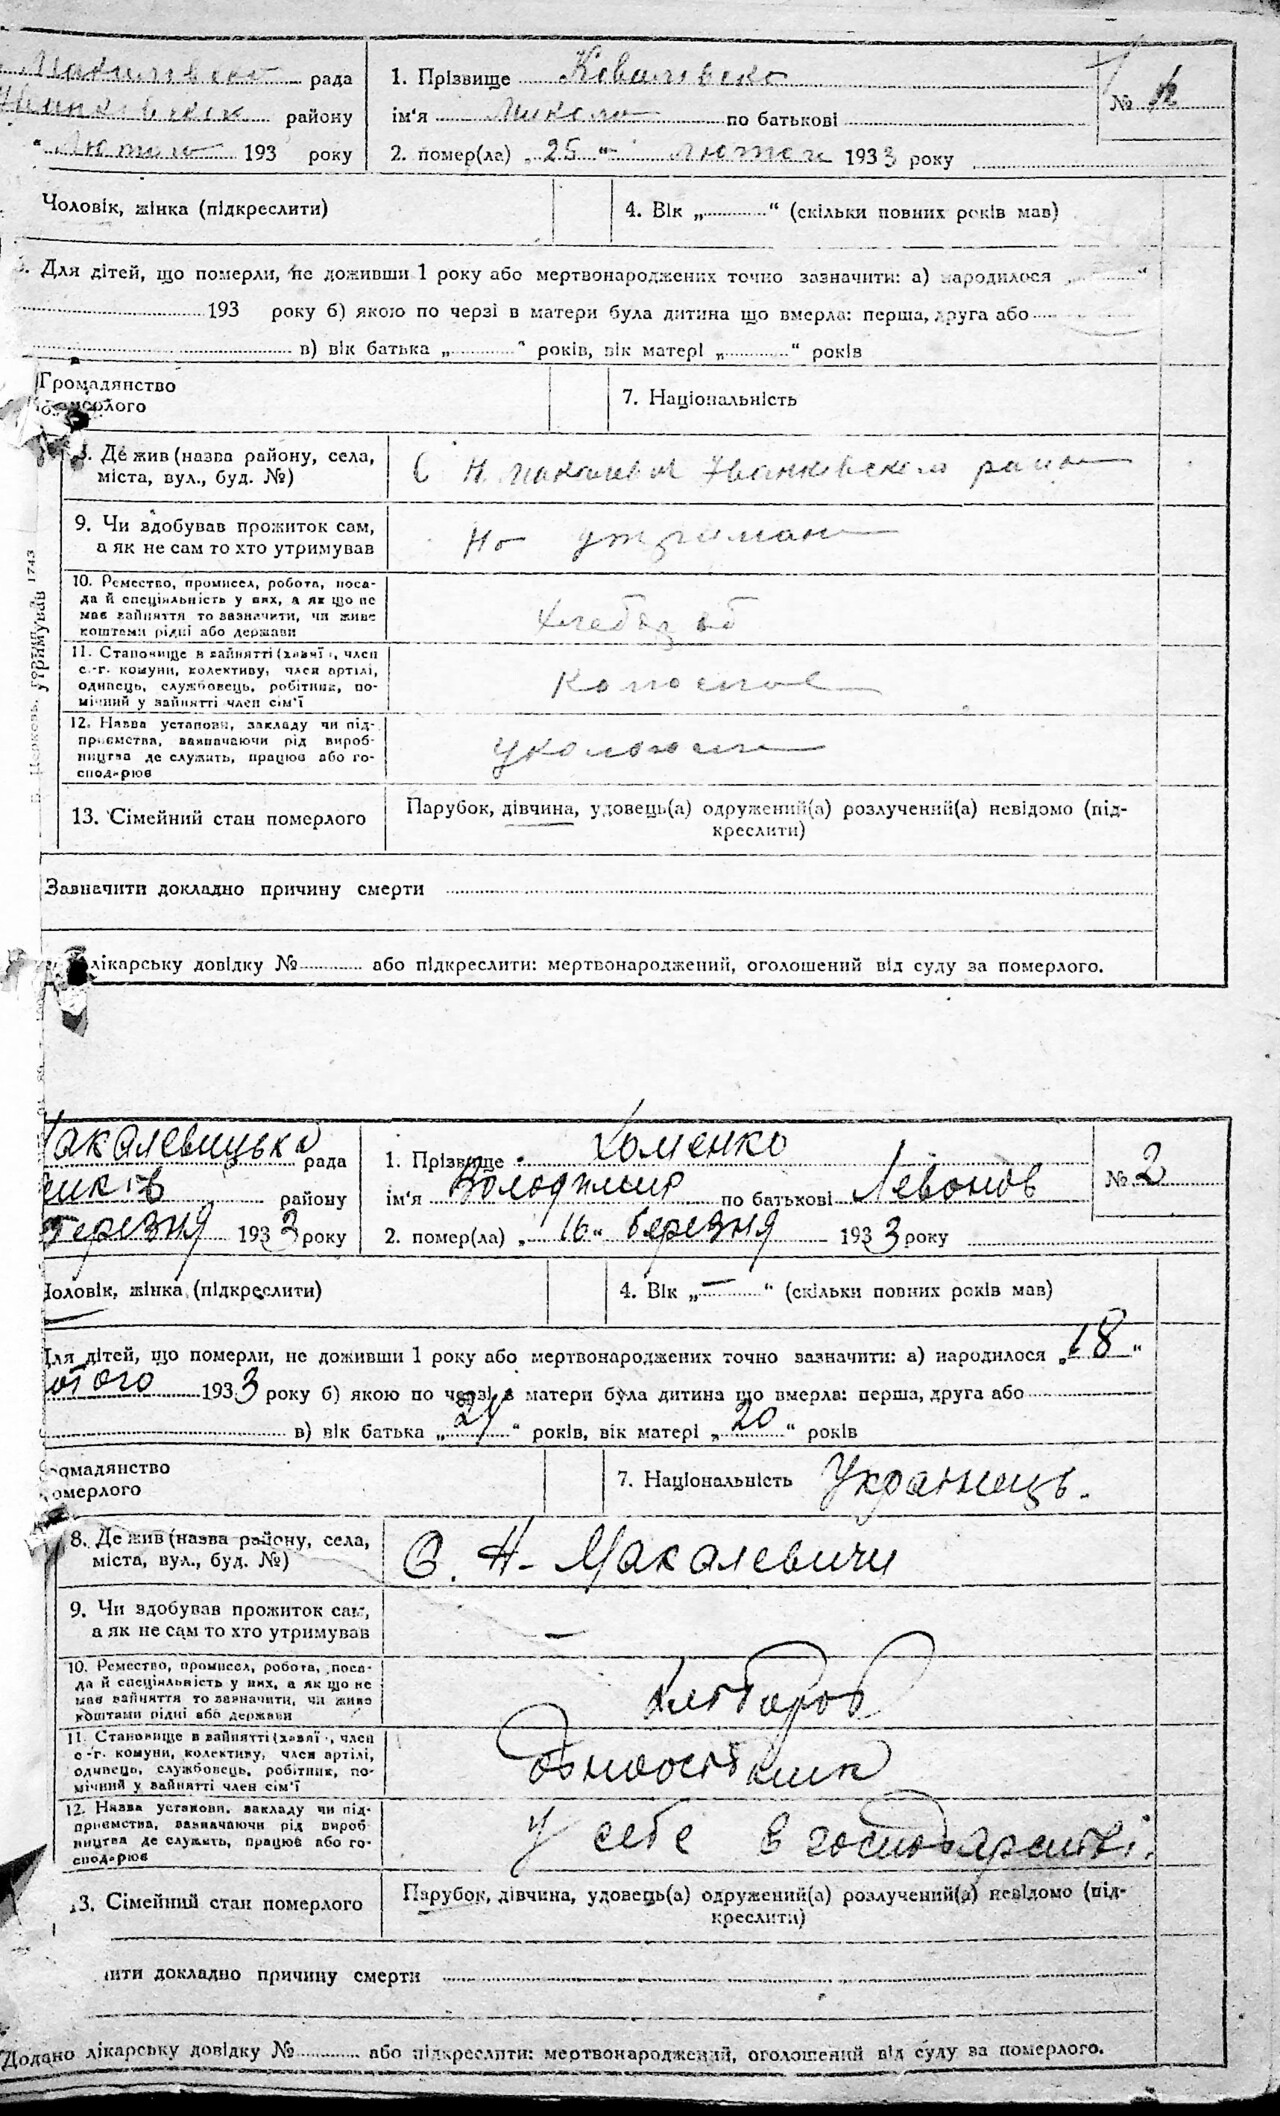 рада
району
193 року
1. Прізвище
ім'я Микола по батькові
2. помер(ла) „25“ 1933 року
№
Чоловік, жінка (підкреслити)
4. Вік „ “ (скільки повних років мав)
Для дітей, що померли, не доживши 1 року або мертвонароджених точно зазначити: а) народилося „ “
193 року б) якою по черзі в матери була дитина що вмерла: перша, друга або
в) вік батька „ “ років, вік матері „ “ років
Громадянство
померлого
7. Національність
8. Де жив (назва району, села,
міста, вул., буд. №)
С Н.
9. Чи здобував прожиток сам,
а як не сам то хто утримував
На
10. Ремество, промисел, робота, поса-
да й спеціяльність у них, а як що не
має зайняття то зазначити, чи живе
коштами рідні або держави
Хлебороб
11. Становище в зайнятті (хазяї , член
с.-г. комуни, колективу, член артілі,
одинець, службовець, робітник, по-
мічний у зайнятті член сім'ї
12. Назва установи, закладу чи під-
приємства, зазначаючи рід вироб-
ництва де служить, працює або го-
сподарює
13. Сімейний стан померлого
Парубок, дівчина, удовець(а) одружений(а) розлучений(а) невідомо (під-
креслити)
Зазначити докладно причину смерти
лікарську довідку № або підкреслити: мертвонароджений, оголошений від суду за померлого.
Макалевицька рада
району
Березня 1933 року
1. Прізвище Хоменко
ім'я Володимир по батькові Левонов
2. помер(ла) „16“ березня 1933 року
№ 2
Чоловік, жінка (підкреслити)
4. Вік „—“ (скільки повних років мав)
Для дітей, що померли, не доживши 1 року або мертвонароджених точно зазначити: а) народилося „18“
1933 року б) якою по черзі в матери була дитина що вмерла: перша, друга або
в) вік батька „24“ років, вік матері „20“ років
Громадянство
померлого
7. Національність Українець.
8. Де жив (назва району, села,
міста, вул., буд. №)
С. Н-Макалевичи
9. Чи здобував прожиток сам,
а як не сам то хто утримував
—
10. Ремество, промисел, робота, поса-
да й спеціяльність у них, а як що не
має зайняття то зазначити, чи живе
коштами рідні або держави
Хлібороб
11. Становище в зайнятті (хазяї , член
с.-г. комуни, колективу, член артілі,
одинець, службовець, робітник, по-
мічний у зайнятті член сім'ї
Одноосібник
12. Назва установи, закладу чи під-
приємства, зазначаючи рід вироб-
ництва де служить, працює або го-
сподарює
У себе в господарстві.
13. Сімейний стан померлого
Парубок, дівчина, удовець(а) одружений(а) розлучений(а) невідомо (під-
креслити)
докладно причину смерти
Додано лікарську довідку № або підкреслити: мертвонароджений, оголошений від суду за померлого.